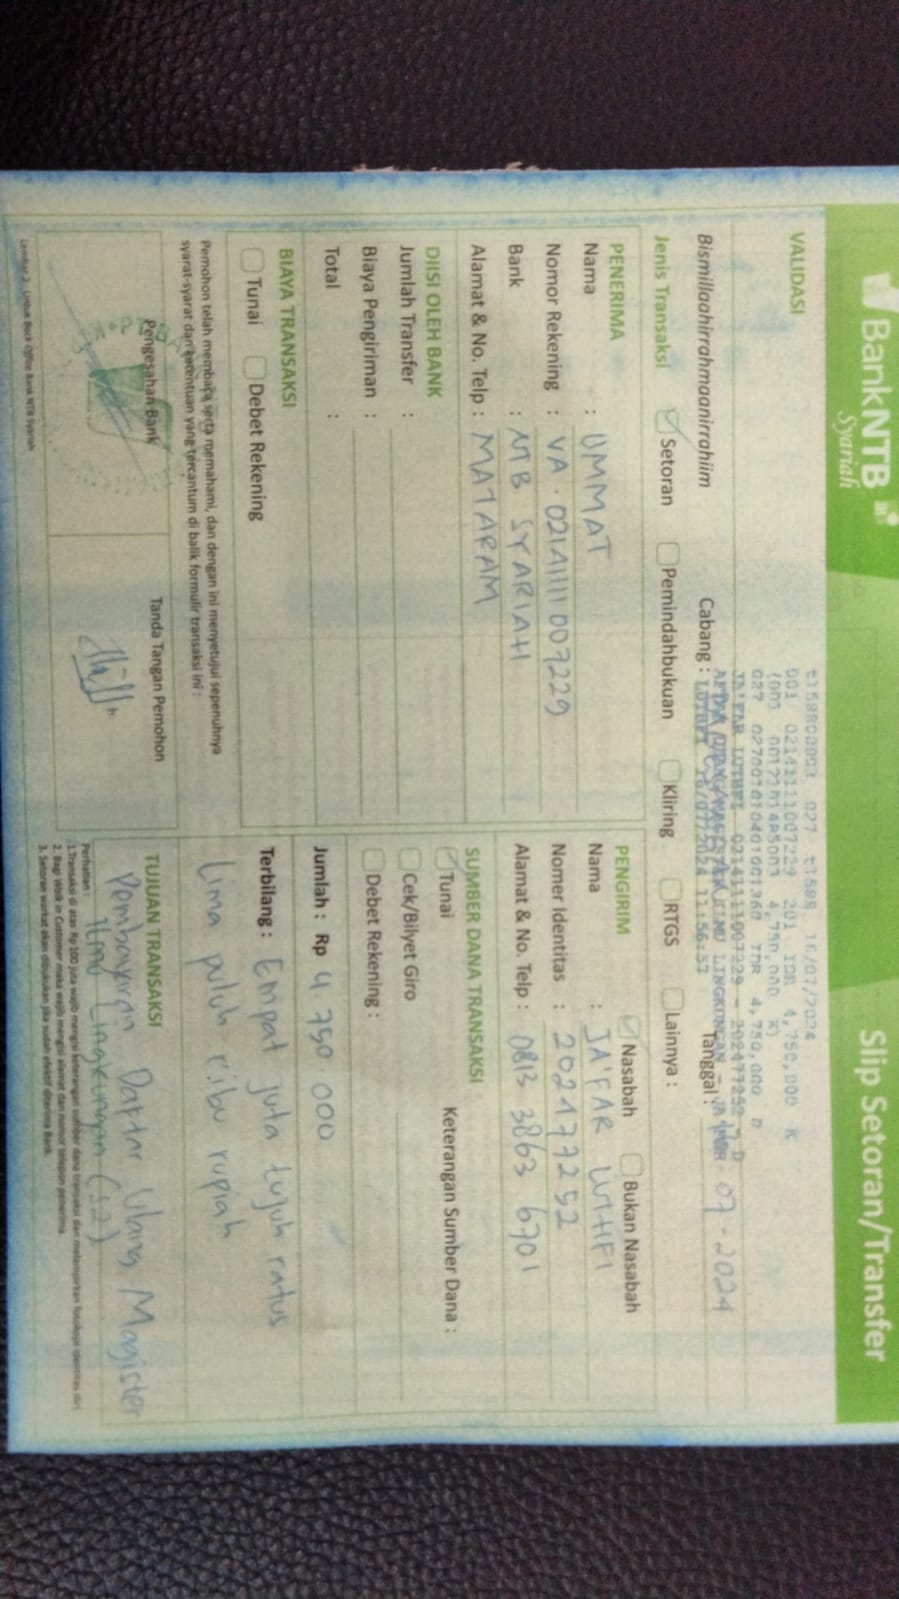 BankNTB
Syariah
Slip Setoran/Transfer
VALIDASI
t159R00003 027 t1588 16/07/2024
001 02141111007229 201 IDR 4,750,000 K
4,750,000 K)
IDR 4,750,000 D
JA'FAR LUTHFI 02141111007229 - 202477252
ILMU LINGKUNGAN
LUTHFI 16/07/2024 11:56:57
Bismillaahirrahmaanirrahiim
Cabang :
Tanggal : 07 - 2024
Jenis Transaksi
Setoran
Pemindahbukuan
Kliring
RTGS
Lainnya :
PENERIMA
Nama : UMMAT
Nomor Rekening : VA. 02141111007229
Bank : NTB SYARIAH
Alamat & No. Telp : MATARAM
DIISI OLEH BANK
Jumlah Transfer :
Biaya Pengiriman :
Total :
BIAYA TRANSAKSI
Tunai
Debet Rekening
Pemohon telah membaca serta memahami, dan dengan ini menyetujui sepenuhnya
syarat-syarat dan ketentuan yang tercantum di balik formulir transaksi ini :
Pengesahan Bank
Tanda Tangan Pemohon
Lembar 2 : Untuk Back Office Bank NTB Syariah
PENGIRIM
Nasabah
Bukan Nasabah
Nama : JA'FAR LUTHFI
Nomer Identitas : 202477252
Alamat & No. Telp : 0813 3863 6701
SUMBER DANA TRANSAKSI
Keterangan Sumber Dana :
Tunai
Cek/Bilyet Giro
Debet Rekening :
Jumlah : Rp 4.750.000
Terbilang : Empat juta tujuh ratus
lima puluh ribu rupiah
TUJUAN TRANSAKSI
Pembayaran Daftar Ulang Magister
Ilmu Lingkungan (S2)
Perhatian :
1.Transaksi di atas Rp 100 juta wajib mengisi keterangan sumber dana transaksi dan melampirkan fotokopi identitas diri.
2. Bagi Walk in Customer maka wajib mengisi alamat dan nomor telepon penerima
3. Setoran warkat akan dibukukan jika sudah efektif diterima Bank.